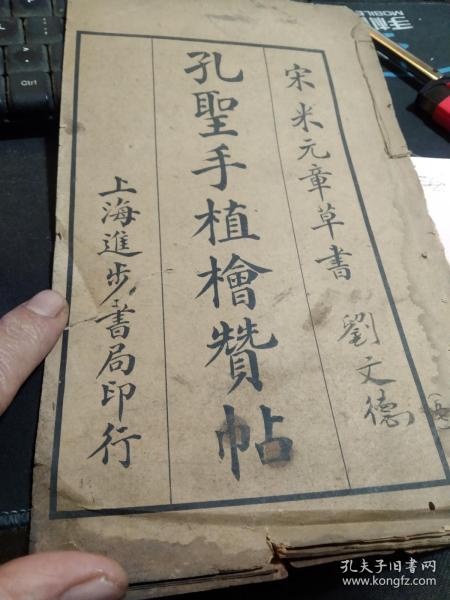 宋米元章草書
劉文德
孔聖手植檜贊帖
上海進步書局印行
Ctrl
手机
MOBILE
孔夫子旧书网
www.kongfz.com